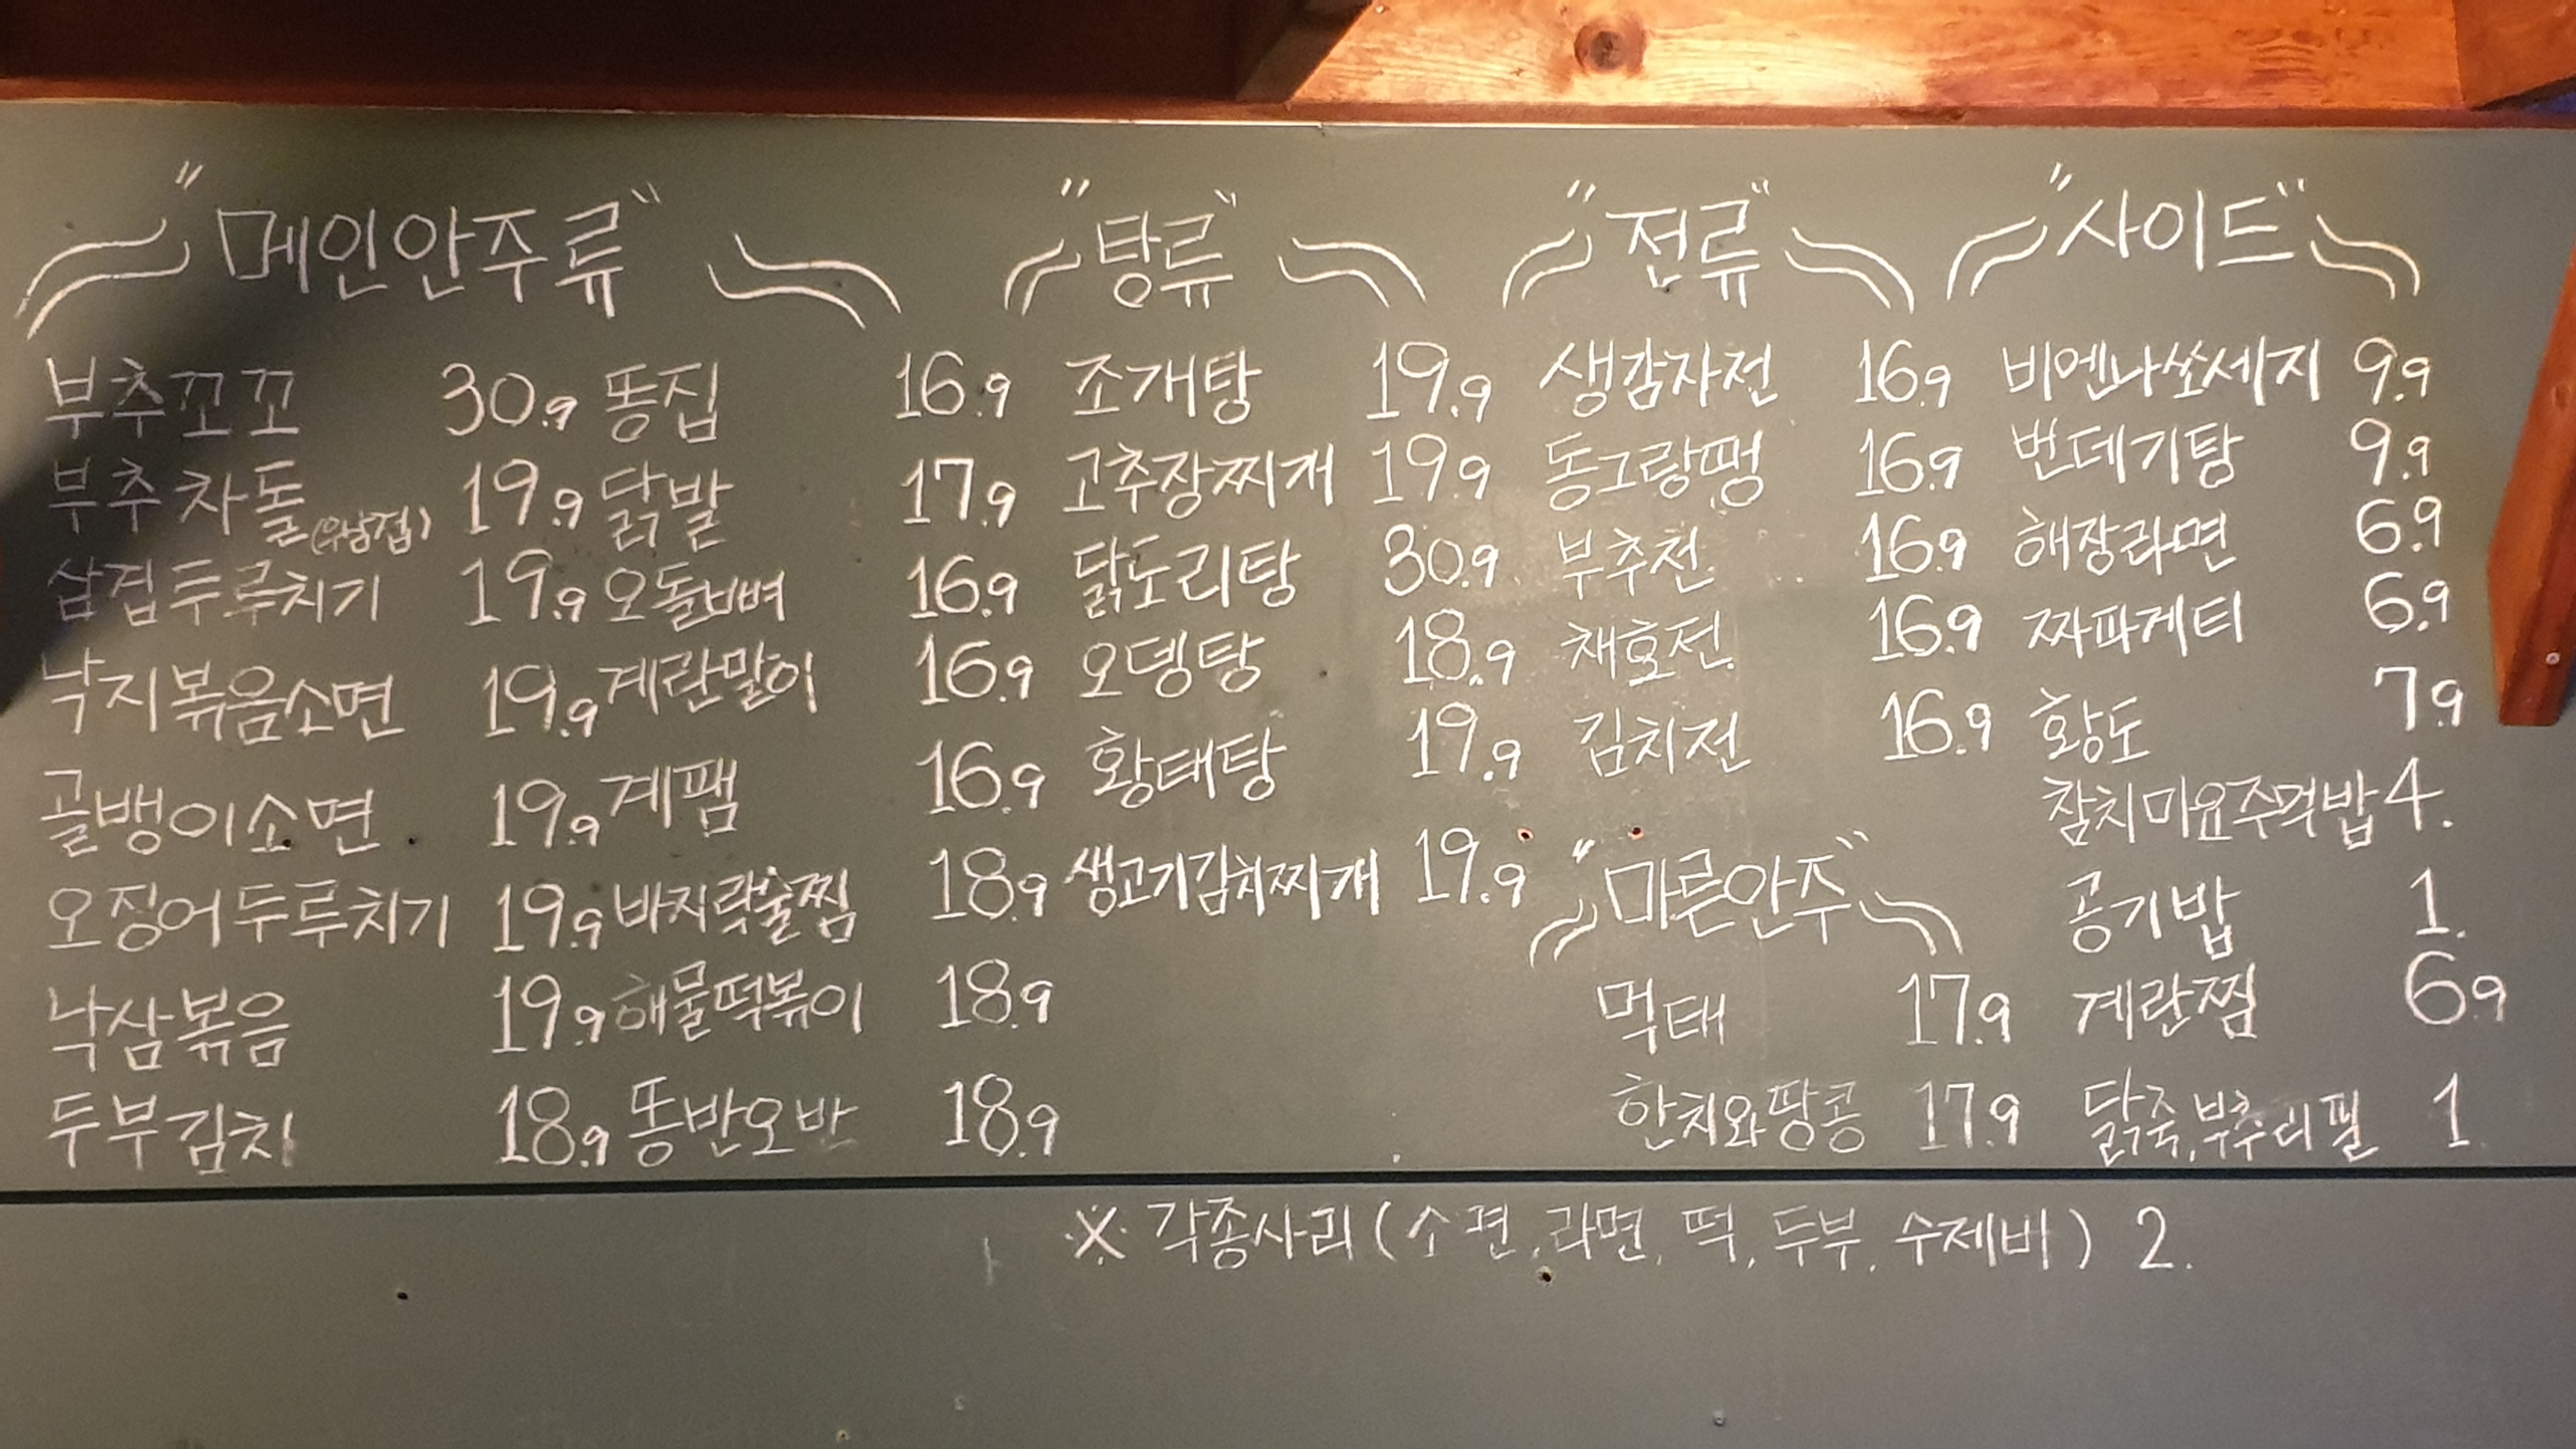 "메인안주류"
부추꼬꼬 30.9 똥집 16.9
부추차돌(우삼겹) 19.9 닭발 17.9
삼겹두루치기 19.9 오돌뼈 16.9
낙지볶음소면 19.9 계란말이 16.9
골뱅이소면 19.9 계팸 16.9
오징어두루치기 19.9 바지락술찜 18.9
낙삼볶음 19.9 해물떡볶이 18.9
두부김치 18.9 똥반오반 18.9
"탕류"
조개탕 19.9
고추장찌개 19.9
닭도리탕 30.9
오뎅탕 18.9
황태탕 19.9
생고기김치찌개 19.9
"전류"
생감자전 16.9
동그랑땡 16.9
부추전 16.9
채호전 16.9
김치전 16.9
"마른안주"
먹태 17.9
한치와땅콩 17.9
"사이드"
비엔나쏘세지 9.9
번데기탕 9.9
해장라면 6.9
짜파게티 6.9
황도 7.9
참치마요주먹밥 4.
공기밥 1.
계란찜 6.9
닭죽,부추리필 1.
※ 각종사리 (소면, 라면, 떡, 두부, 수제비) 2.